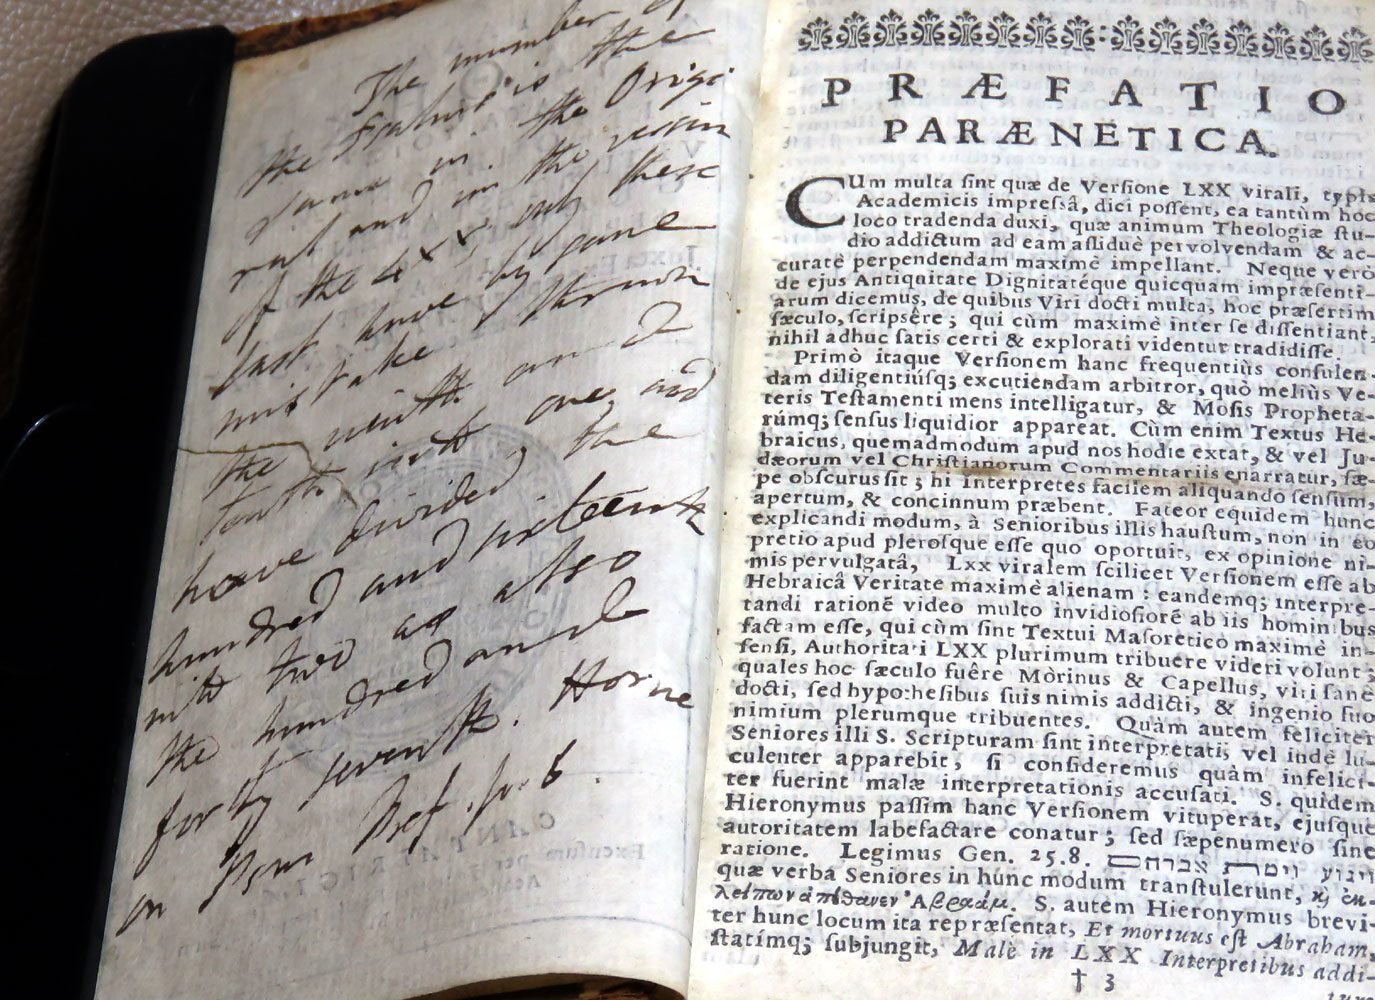 The number of
the Psalms is the
same in the Origi
nal and in the version
of the LXX only these
last have by some
mistake thrown
the ninth and
tenth into one and
have divided the
hundred and sixteenth
into two as also
the hundred and
forty seventh. Horne
on Psm Pref. p. 6.
PRÆFATIO
PARÆNETICA.
CUm multa ſint quæ de Verſione LXX virali, typis
Academicis impreſsâ, dici poſſent, ea tantùm hoc
loco tradenda duxi, quæ animum Theologiæ ſtu-
dio addictum ad eam aſſiduè pervolvendam & ac-
curatè perpendendam maximè impellant. Neque verò
de ejus Antiquitate Dignitatéque quicquam impræſenti-
arum dicemus, de quibus Viri docti multa, hoc præſertim
ſæculo, ſcripsêre; qui cùm maximè inter ſe diſſentiant,
nihil adhuc ſatis certi & explorati videntur tradidiſſe.
Primò itaque Verſionem hanc frequentiùs conſulen-
dam diligentiúſq; excutiendam arbitror, quò meliùs Ve-
teris Teſtamenti mens intelligatur, & Moſis Propheta-
rúmq; ſenſus liquidior appareat. Cùm enim Textus He-
braicus, quemadmodum apud nos hodie extat, & vel Ju-
dæorum vel Chriſtianorum Commentariis enarratur, ſæ-
pe obſcurus ſit; hi Interpretes facilem aliquando ſenſum,
apertum, & concinnum præbent. Fateor equidem hunc
explicandi modum, à Senioribus illis hauſtum, non in eo
pretio apud pleroſque eſſe quo oportuit, ex opinione ni-
mis pervulgatâ, Lxx viralem ſcilicet Verſionem eſſe ab
Hebraicâ Veritate maximè alienam: eandemq; interpre-
tandi rationẽ video multo invidioſiorẽ ab iis hominibus
factam eſſe, qui cùm ſint Textui Maſoretico maximè in-
fenſi, Authoritati LXX plurimum tribuere videri volunt;
quales hoc ſæculo fuêre Mòrinus & Capellus, viri ſanè
docti, ſed hypotheſibus ſuis nimis addicti, & ingenio ſuo
nimium plerumque tribuentes. Quàm autem feliciter
Seniores illi S. Scripturam ſint interpretati, vel indè lu-
culenter apparebit, ſi conſideremus quàm infelici-
ter fuerint malæ interpretationis accuſati. S. quidem
Hieronymus paſſim hanc Verſionem vituperat, ejuſque
autoritatem labefactare conatur; ſed ſæpenumero ſine
ratione. Legimus Gen. 25.8. ויגוע וימת אברהם
quæ verba Seniores in hunc modum tranſtulerunt, ϗ ἐκ-
λείπων ἀπέθανεν Ἀβραάμ. S. autem Hieronymus brevi-
ter hunc locum ita repræſentat, Et mortuus eſt Abraham,
ſtatímq; ſubjungit, Malè in LXX Interpretibus addi-
† 3